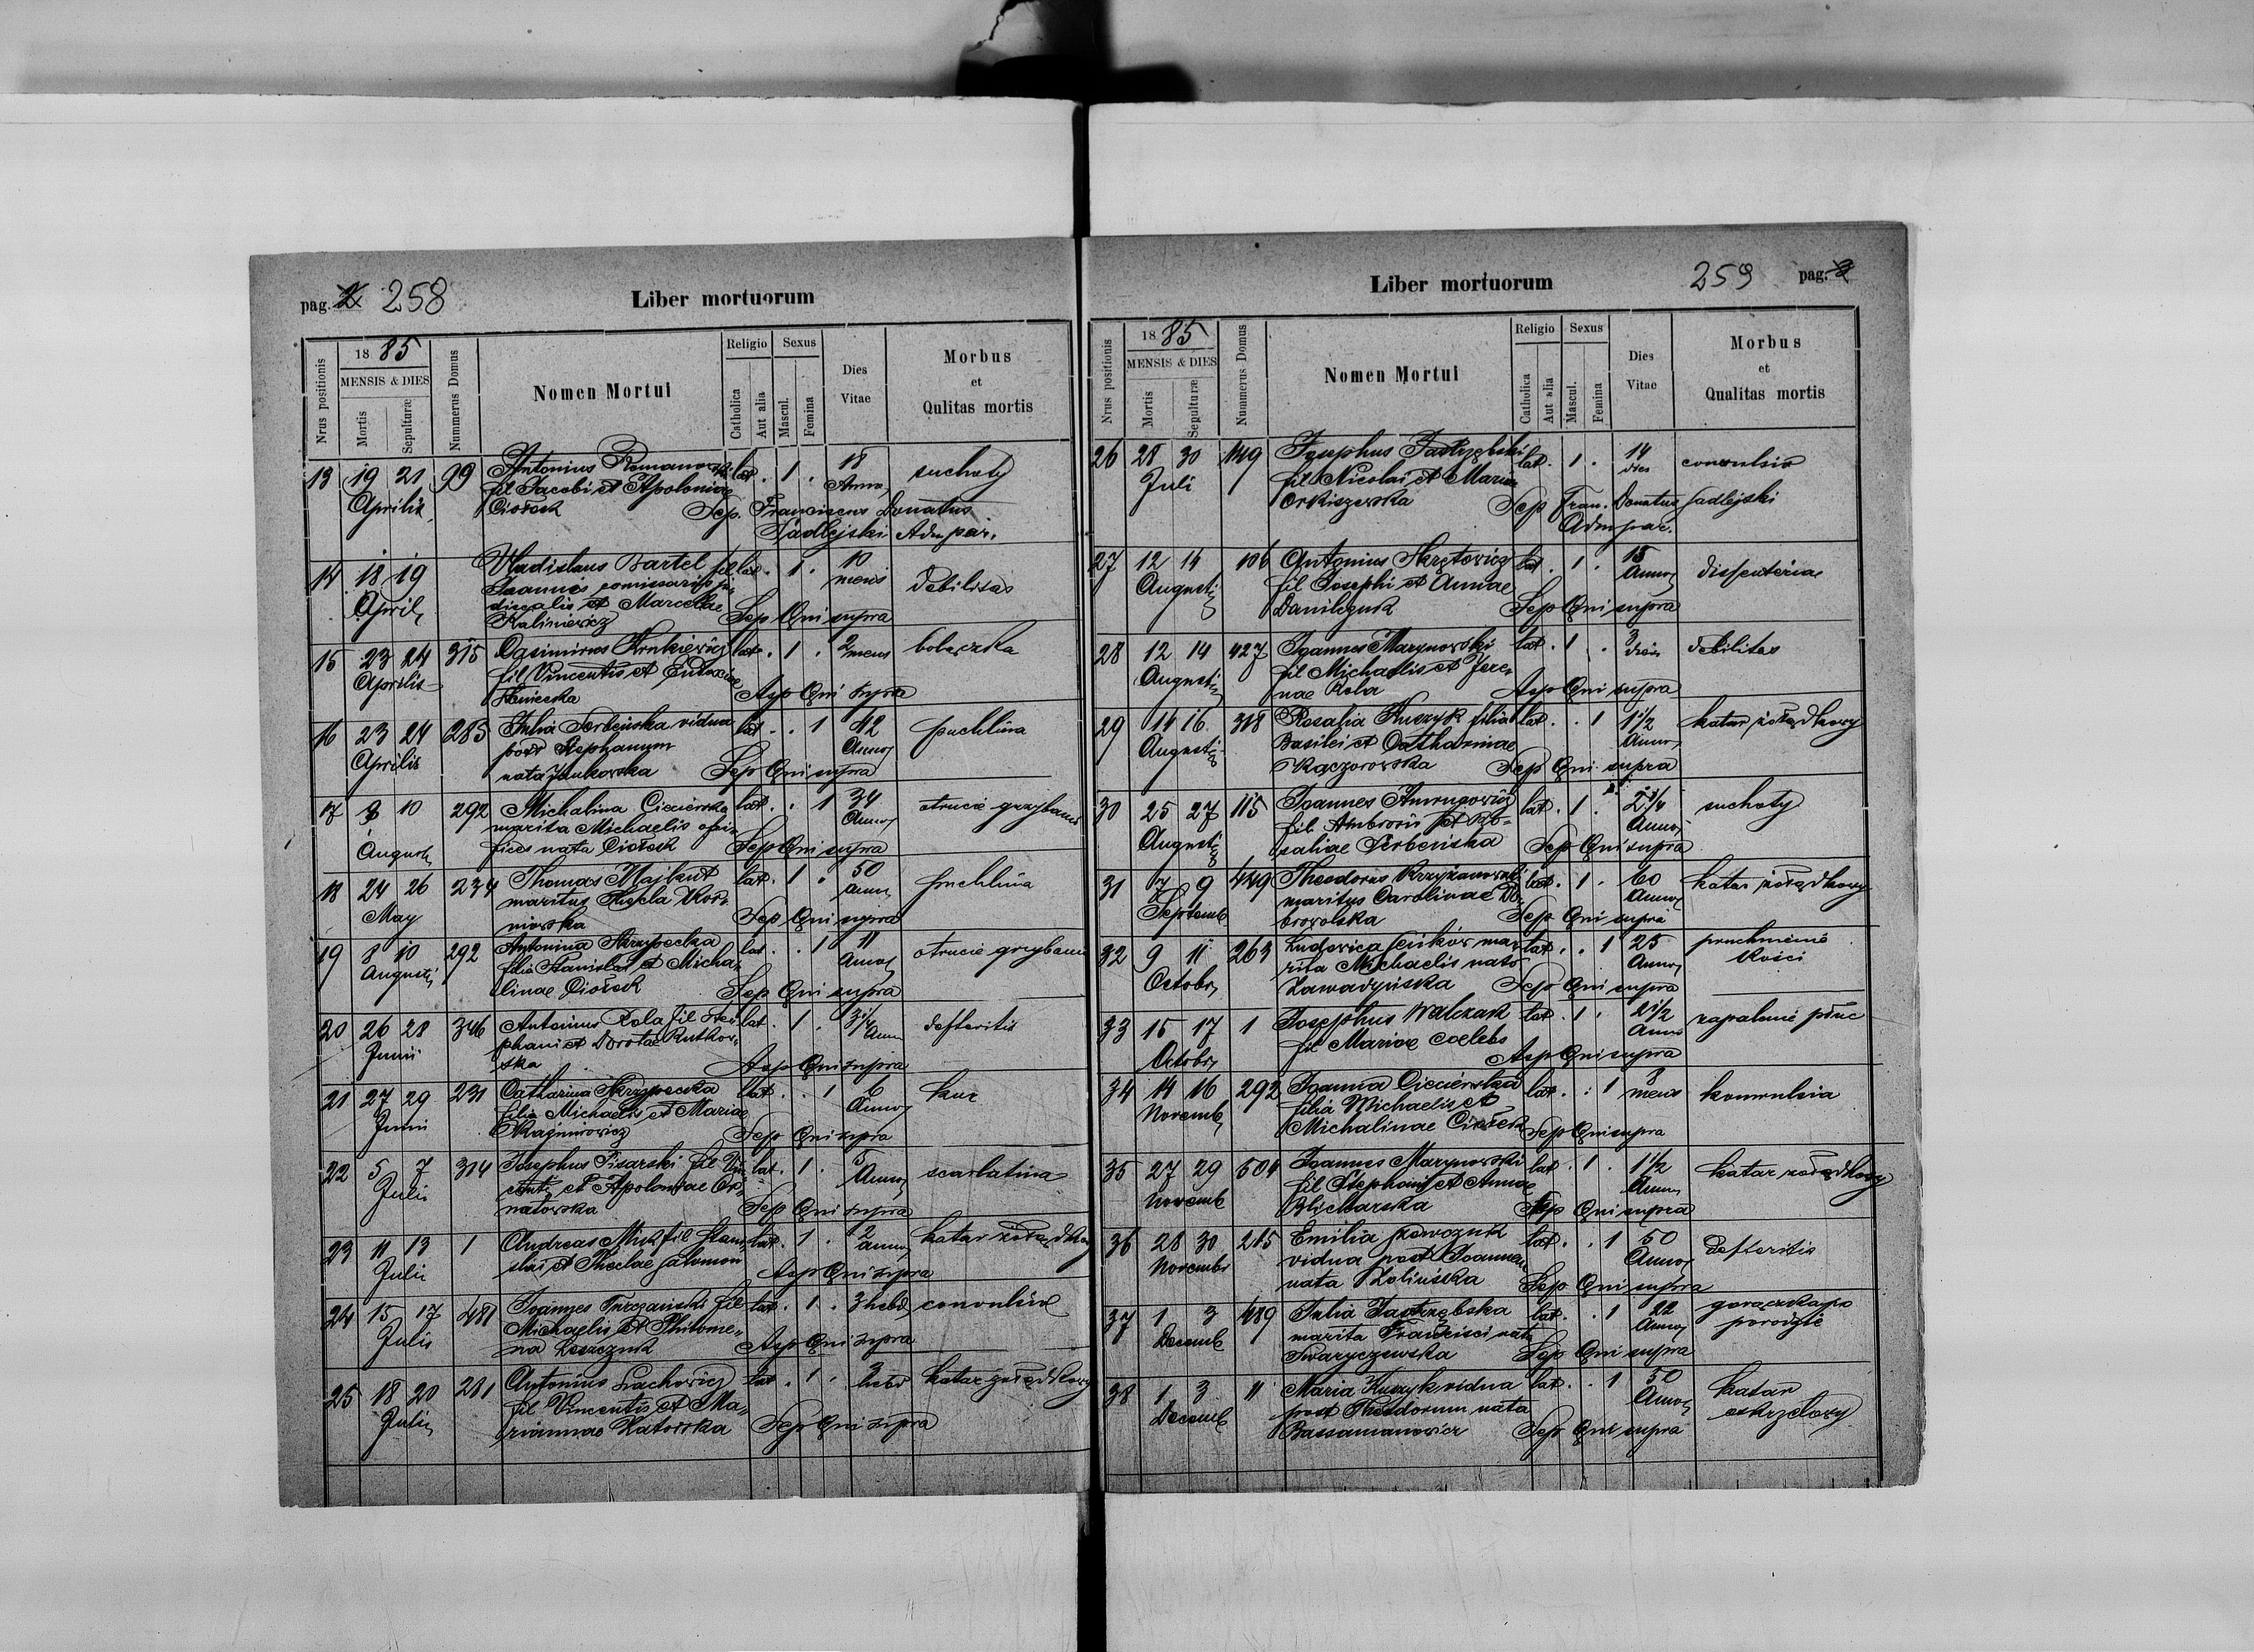 pag. 2 258
Liber mortuorum
Nrus positionis
18 85
MENSIS & DIES
Mortis
Sepulturæ
Nummerus Domus
Nomen Mortui
Religio
Catholica
Aut alia
Sexus
Mascul.
Femina
Dies
Vitae
Morbus
et
Qulitas mortis
13 19 21 99 Antonius Romanowski lat. 1 . 18 suchoty
Aprilis fil Jacobi et Apoloniae Anno
Ciołock Sep. Franciscus Donatus
Sadlejski Adm par.
14 18 19 Vladislaus Bartel fil lat. 1 . 10 debilitas
April Joannis comissarii
et Marcellae mens
Kaliniewicz Sep Qui supra
15 23 24 315 Casimirus lat. 1 . 2 mens
Aprilis fil Vincentii et Eudoxiae
Asp Qui supra
16 23 24 285 Julia Serbeńska vidua lat. . 1 42 puchlina
Aprilis post Stephanum Annos
nata Jankowska Sep Qui supra
17 8 10 292 Michalina Ciecierska lat. . 1 34 otrucie grzybami
Augusti marita Michaelis opi- Annos
fices nata Ciołock Sep Qui supra
18 24 26 234 Thomas Majkut lat. 1 . 50 puchlina
May maritus Thecla Kor- Ann
niowska Sep Qui supra
19 8 10 292 Antonina Skrzypecka lat. . 1 11 otrucie grzybami
Augusti filia Stanislai et Micha- Annos
linae Ciołock Sep Qui supra
20 26 28 346 Antonius Rola fil Ste- lat. 1 . 3 1/4 defteritis
Junii phani et Dorotae Rutkow- Ann
ska Asp Qui supra
21 27 29 231 Catharina Skrzypecka lat. . 1 6 kur
Junii filia Michaelis et Mariae Annos
Kaźmirowicz Sep Qui supra
22 5 7 314 Josephus Pisarski fil Vin- lat. 1 . 5 scarlatina
Julii centi et Apoloniae Annos
natowska Sep Qui supra
23 11 13 1 Andreas Muk fil Stani- lat. 1 . 2 katar żołądkowy
Julii slai et Theclae Salomon annos
Asp Qui supra
24 15 17 481 Joannes Turczański fil lat. 1 . 3 hebd convulsio
Julii Michaelis et Philome-
na Leszczuk Asp Qui supra
25 18 20 281 Antonius Lachowicz lat. 1 . 3 katar żołądkowy
Julii fil Vincentii et Ma- hebd
riannae Zatorska Sep Qui supra
Liber mortuorum
259 pag. 3
Nrus positionis
18 85
MENSIS & DIES
Mortis
Sepulturæ
Nummerus Domus
Nomen Mortui
Religio
Catholica
Aut alia
Sexus
Mascul.
Femina
Dies
Vitae
Morbus
et
Qualitas mortis
26 28 30 149 Josephus Jastrzębski lat. 1 . 14 convulsio
Juli fil Nicolai et Maria dies
Orkiszewska Sep Fran. Donatus Sadlejski
Adm par.
27 12 14 106 Antonius Skrętowicz lat. 1 . 15
Augusti fil Josephi et Annae Annos
Danilczuk Sep Qui supra
28 12 14 427 Joannes Marynowski lat. 1 . 3 debilitas
Augusti fil Michaelis et Jere- dies
nae Rola Asp Qui supra
29 14 16 318 Rosalia Kuszyk filia lat. . 1 1 1/2 katar żołądkowy
Augusti Basilei et Catharinae Annos
Kaczorowska Sep Qui supra
30 25 27 115 Joannes lat. 1 . 2 3/4 suchoty
Augusti fil. Ambrosii et Ro- Annos
saliae Serbeńska Sep Qui supra
31 7 9 449 Theodorus Krzyżanowski lat. 1 . 60 katar żołądkowy
Septemb maritus Carolinae Do- Annos
browolska Sep Qui supra
32 9 11 263 Ludovica mar- lat. . 1 25 pruchnienie
Octobr rita Michaelis nata Annos kości
Zawadyńska Sep Qui supra
33 15 17 1 Josephus Walczak lat. 1 . 2 1/2 zapalenie płuc
Octobr fil Mariae coelebs Annos
Asp Qui supra
34 14 16 292 Joanna Ciecierska lat. . 1 8 konwulsia
Novemb filia Michaelis et mens
Michalinae Ciołock Sep Qui supra
35 27 29 504 Joannes Marynowski lat. 1 . 1 1/2 katar żołądkowy
Novemb fil Stephani et Annae Annos
Blicharska Sep Qui supra
36 28 30 215 Emilia lat. . 1 50 defteritis
Novembr vidua post Joannem Annos
nata Zolińska Sep Qui supra
37 1 3 489 Julia Jastrzębska lat. . 1 22 gorączka po
Decemb marita Francisci nata Annos porodzie
Twaryczewska Sep Qui supra
38 1 3 11 Maria Kuszyk vidua lat. . 1 50 katar
Decemb post Theodorum nata Annos oskrzelowy
Bassamanowicz Sep Qui supra